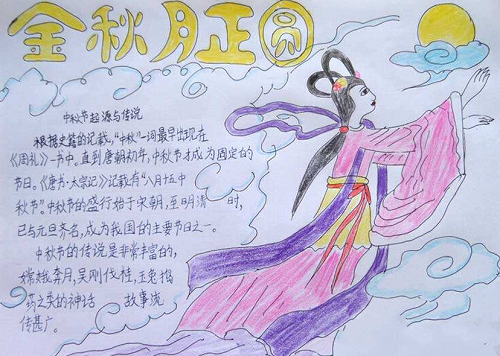 金秋月正圆
中秋节起源与传说
根据史籍的记载,“中秋”一词最早出现在
《周礼》一书中。直到唐朝初年,中秋节才成为固定的
节日。《唐书·太宗记》记载有“八月十五中
秋节”。中秋节的盛行始于宋朝,至明清 时,
已与元旦齐名,成为我国的主要节日之一。
中秋节的传说是非常丰富的,
嫦娥奔月,吴刚伐桂,玉兔捣
药之类的神话 故事流
传甚广。